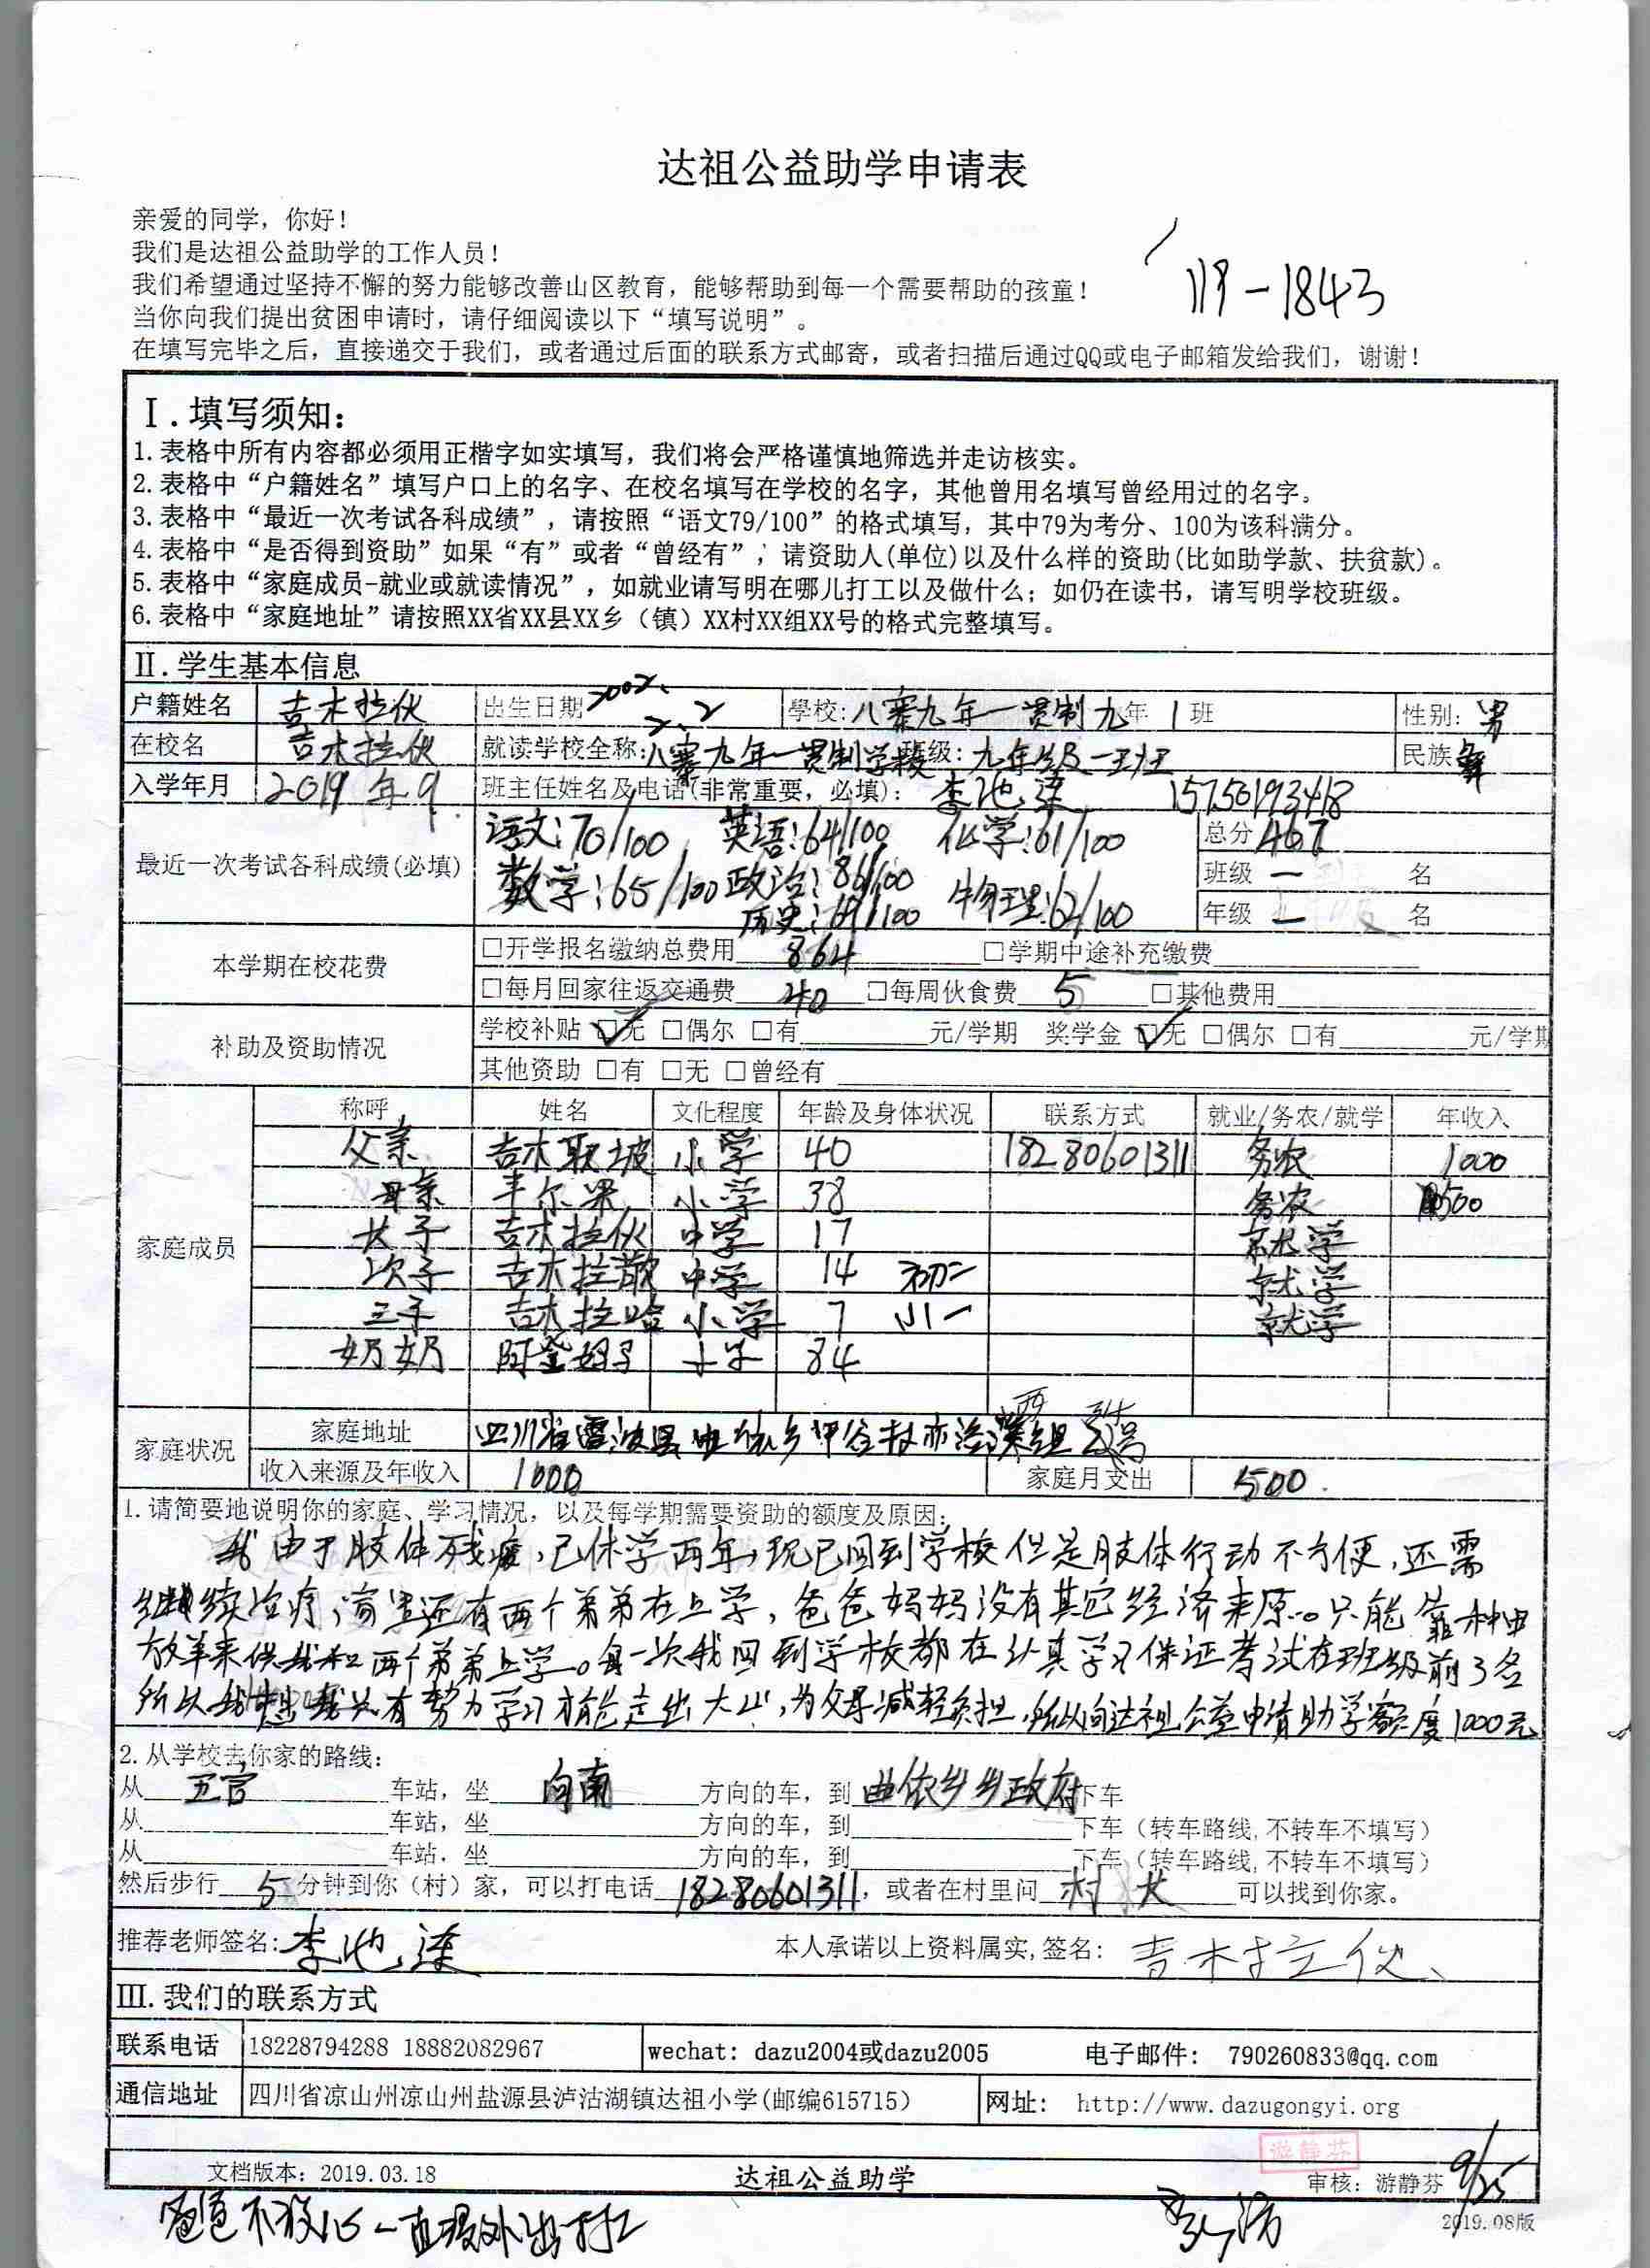 达祖公益助学申请表
亲爱的同学，你好！
我们是达祖公益助学的工作人员！
我们希望通过坚持不懈的努力能够改善山区教育，能够帮助到每一个需要帮助的孩童！
119-1843
当你向我们提出贫困申请时，请仔细阅读以下“填写说明”。
在填写完毕之后，直接递交于我们，或者通过后面的联系方式邮寄，或者扫描后通过QQ或电子邮箱发给我们，谢谢！
Ⅰ.填写须知：
1.表格中所有内容都必须用正楷字如实填写，我们将会严格谨慎地筛选并走访核实。
2.表格中“户籍姓名”填写户口上的名字、在校名填写在学校的名字，其他曾用名填写曾经用过的名字。
3.表格中“最近一次考试各科成绩”，请按照“语文79/100”的格式填写，其中79为考分、100为该科满分。
4.表格中“是否得到资助”如果“有”或者“曾经有”，请资助人(单位)以及什么样的资助(比如助学款、扶贫款)。
5.表格中“家庭成员-就业或就读情况”，如就业请写明在哪儿打工以及做什么；如仍在读书，请写明学校班级。
6.表格中“家庭地址”请按照XX省XX县XX乡（镇）XX村XX组XX号的格式完整填写。
Ⅱ.学生基本信息
户籍姓名 吉木拉伙 出生日期 2002.2.2 學校：八寨九年一贯制 九年 1 班 性别：男
在校名 吉木拉伙 就读学校全称：八寨九年一贯制学校 班级：九年级一班 民族 彝
入学年月 2019年9. 班主任姓名及电话(非常重要，必填)： 李池连 15750193418
最近一次考试各科成绩(必填) 语文:70/100 英语:64/100 化学:61/100 总分 467
数学:65/100 政治:86/100 物理:62/100 班级 一 名
历史:69/100 年级 一 名
本学期在校花费 □开学报名缴纳总费用 864 □学期中途补充缴费
□每月回家往返交通费 40 □每周伙食费 5 □其他费用
补助及资助情况 学校补贴 ☑无 □偶尔 □有 元/学期 奖学金 ☑无 □偶尔 □有 元/学期
其他资助 □有 □无 □曾经有
家庭成员 称呼 姓名 文化程度 年龄及身体状况 联系方式 就业/务农/就学 年收入
父亲 吉木联坡 小学 40 18280601311 务农 1000
母亲 丰尔果 小学 38 务农 500
长子 吉木拉伙 中学 17 就学
次子 吉木拉散 中学 14 初二 就学
三子 吉木拉哈 小学 7 小一 就学
奶奶 84
家庭状况 家庭地址 四川省雷波县曲依乡甲谷村
收入来源及年收入 1000 家庭月支出 500.
1.请简要地说明你的家庭、学习情况，以及每学期需要资助的额度及原因：
我由于肢体残废，已休学两年，现已回到学校但是肢体行动不方便，还需
继续治疗，家里还有两个弟弟在上学，爸爸妈妈没有其它经济来原。只能靠种田
放羊来供我和两个弟弟上学。每一次我回到学校都在认真学习保证考试在班级前3名
所以我想我只有努力学习才能走出大山，为父母减轻负担，所以向达祖公益申请助学额度1000元
2.从学校去你家的路线：
从 卫官 车站，坐 向南 方向的车，到 曲依乡乡政府 下车
从 车站，坐 方向的车，到 下车（转车路线,不转车不填写）
从 车站，坐 方向的车，到 下车（转车路线,不转车不填写）
然后步行 5 分钟到你（村）家，可以打电话 18280601311，或者在村里问 村长 可以找到你家。
推荐老师签名：李池连 本人承诺以上资料属实,签名：吉木拉伙
Ⅲ.我们的联系方式
联系电话 18228794288 18882082967 wechat: dazu2004或dazu2005 电子邮件： 790260833@qq.com
通信地址 四川省凉山州凉山州盐源县泸沽湖镇达祖小学(邮编615715) 网址： http://www.dazugongyi.org
游静芬
文档版本：2019.03.18 达祖公益助学 审核：游静芬 9/25
2019.08版